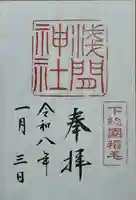 下総國稲毛
浅間神社
奉拝
令和八年
一月三日